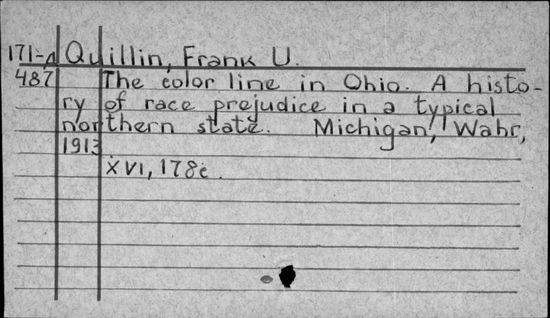 171-A Quillin, Frank U.
487 The color line in Ohio. A histo-
ry of race prejudice in a typical
northern state. Michigan, Wahr,
1913
XVI, 178c.